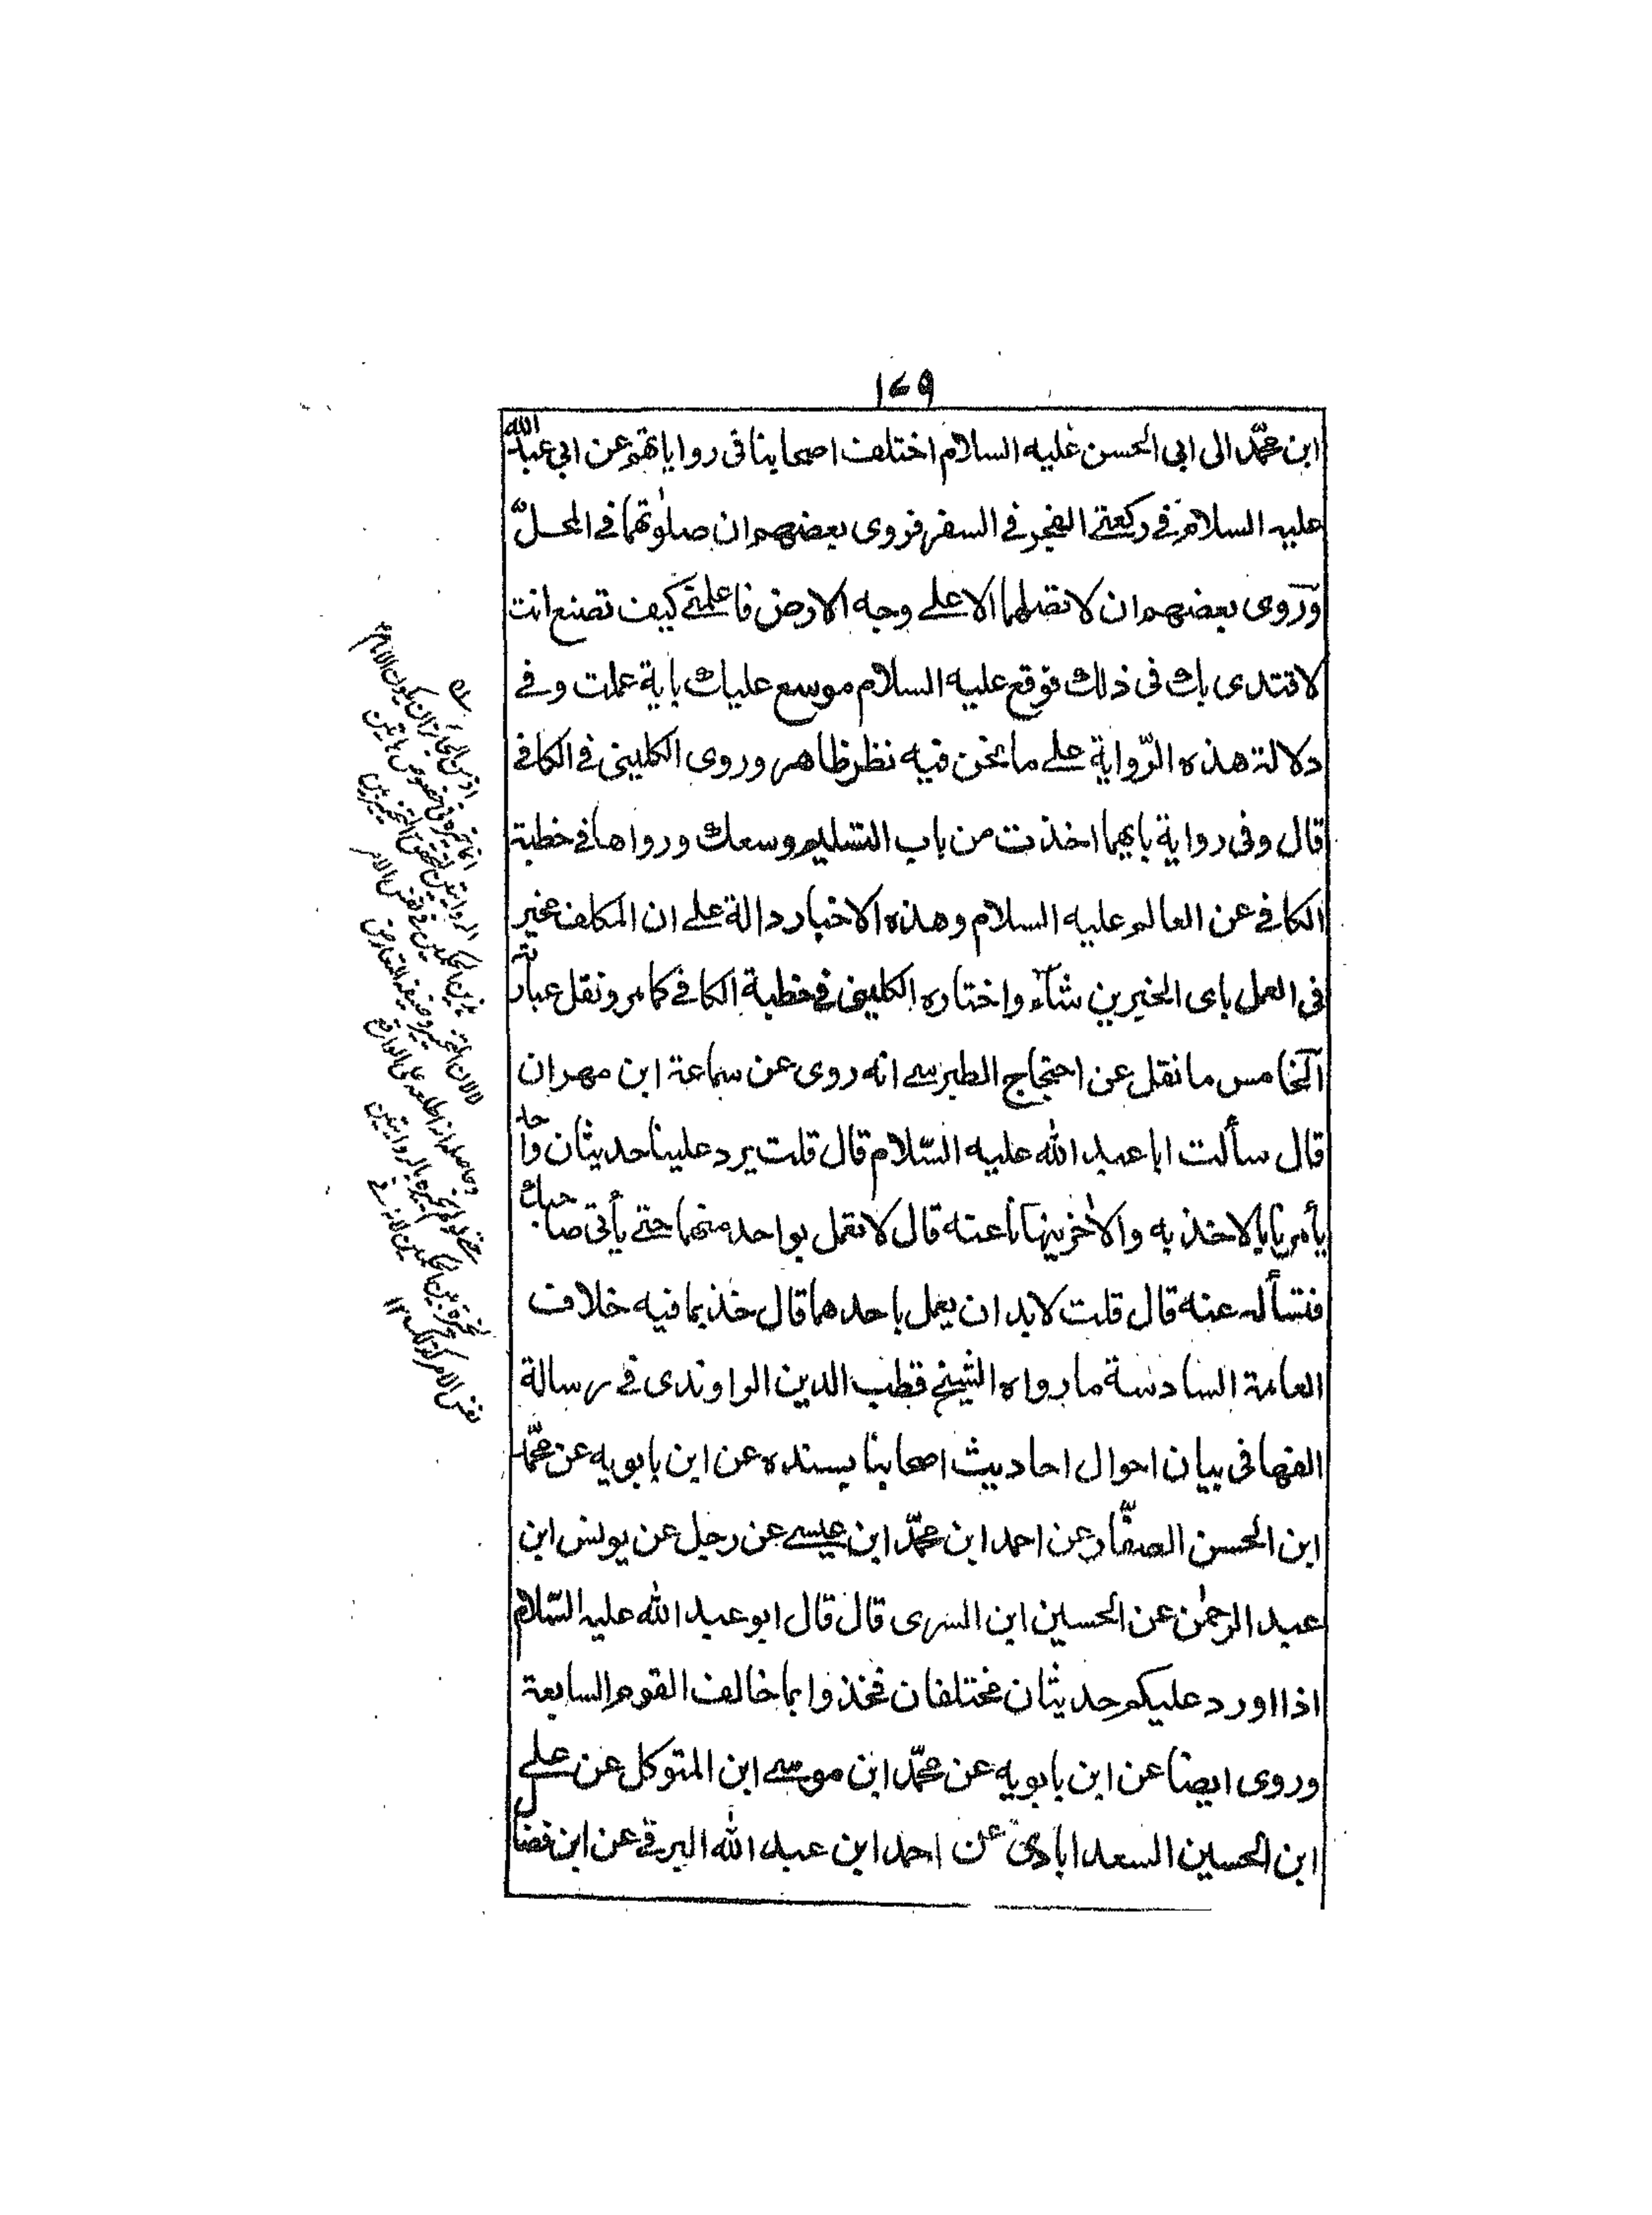 ١٧٩
ابن محمّد الى ابى الحسن عليه السلام اختلف اصحابنا فى رواياتهم عن ابي عبد الله
عليه السلام فے ركعتے الفجر فے السفر فروى بعضهم ان صلوٰتهما فے المحلّ
وروى بعضهم ان لا تصلهما الا علے وجه الارض فاعلمنے كيف تصنع انت
لاقتدى بك فى ذلك فوقع عليه السلام موسع عليك باية عملت وفے
دلالة هذه الرّواية علے ما نحن فيه نظر ظاهر وروى الكلينى فے الكافے
قال وفى رواية بايهما اخذت من باب التسليم وسعك ورواها فے خطبة
الكافے عن العالم عليه السلام وهذه الاخبار دالة علے ان المكلف مخير
فى العمل باى الخبرين شآء واختاره الكلينى فے خطبة الكافے كما مر ونقل عبارته
آلخامس ما نقل عن احتجاج الطبرسے انه روى عن سماعة ابن مهران
قال سألت ابا عبد الله عليه السّلام قال قلت يرد علينا حديثان واحد
يأمرنا بالاخذ به والاٰخر ينهانا عنه قال لا تعمل بواحد منهما حتے يأتى صاحبك
فتسأله عنه قال قلت لابد ان يعمل باحدهما قال خذ بما فيه خلاف
العامة السادسة ما رواه الشيخ قطب الدين الراوندى فے رسالة
الفها فى بيان احوال احاديث اصحابنا بسنده عن ابن بابويه عن محمّد
ابن الحسن الصفّار عن احمد ابن محمّد ابن عيسے عن رجل عن يونس ابن
عبد الرحمٰن عن الحسين ابن السرى قال قال ابو عبد الله عليه السّلام
اذا اورد عليكم حديثان مختلفان فخذوا بما خالف القوم السابعة
وروى ايضا عن ابن بابويه عن محمّد ابن موسے ابن المتوكل عن علے
ابن الحسين السعدابادى عن احمد ابن عبد الله البرقے عن ابن فضال